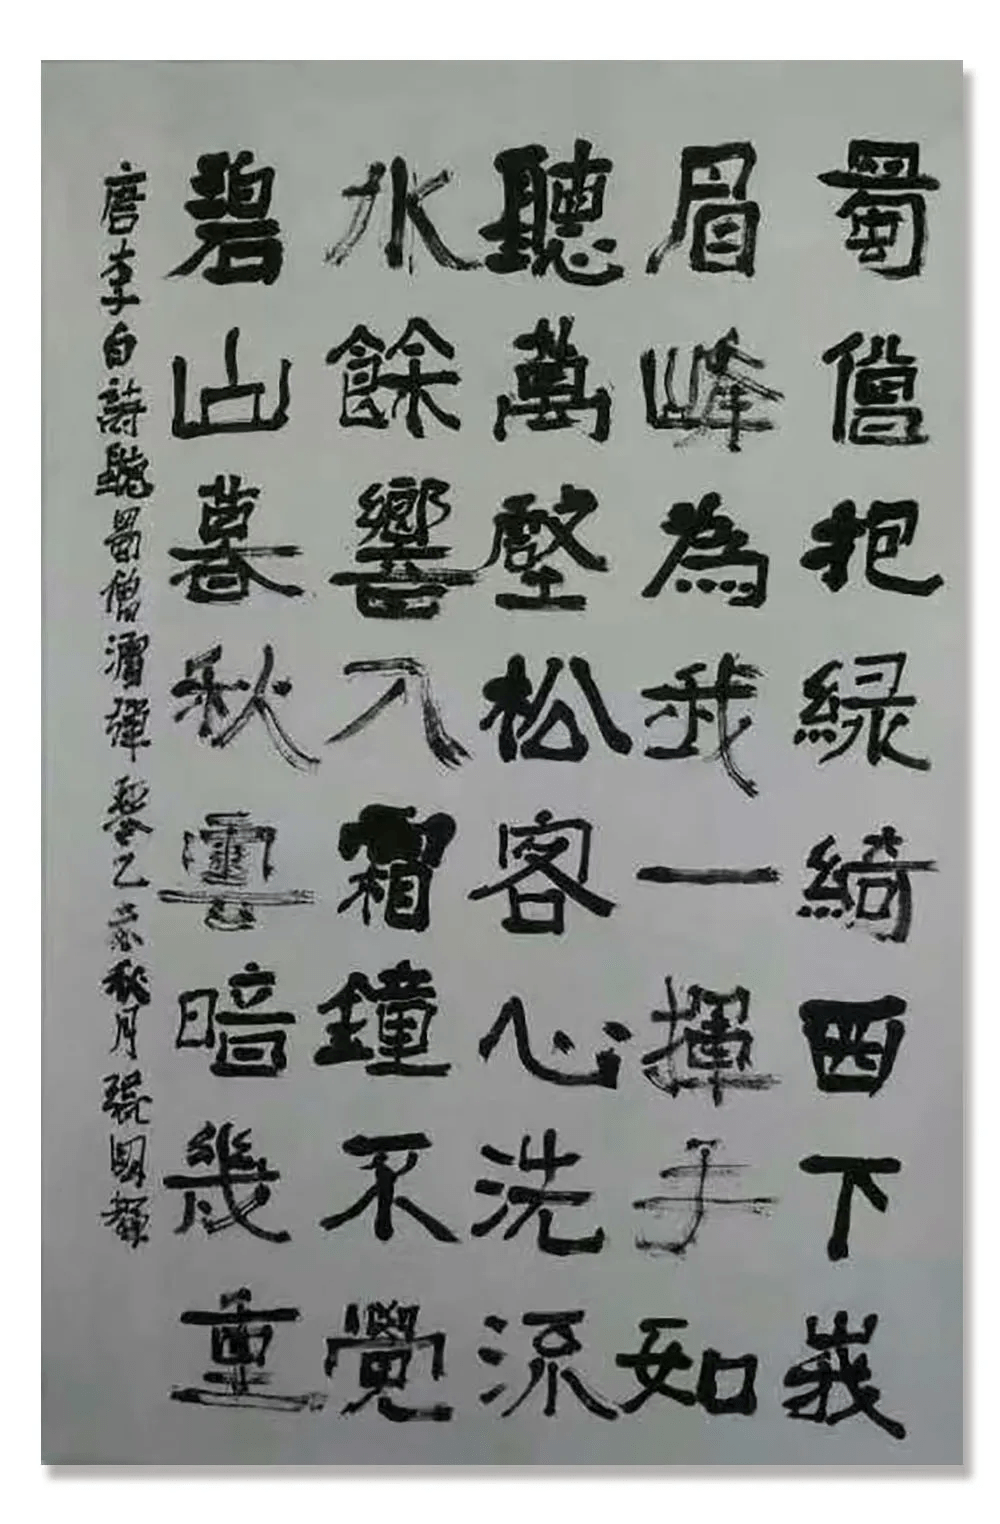 蜀僧抱緑綺西下峩
眉峰為我一揮手如
聽萬壑松客心洗流
水餘響入霜鐘不覺
碧山暮秋雲暗幾重
唐李白詩聽蜀僧濬彈琴乙亥秋月張國